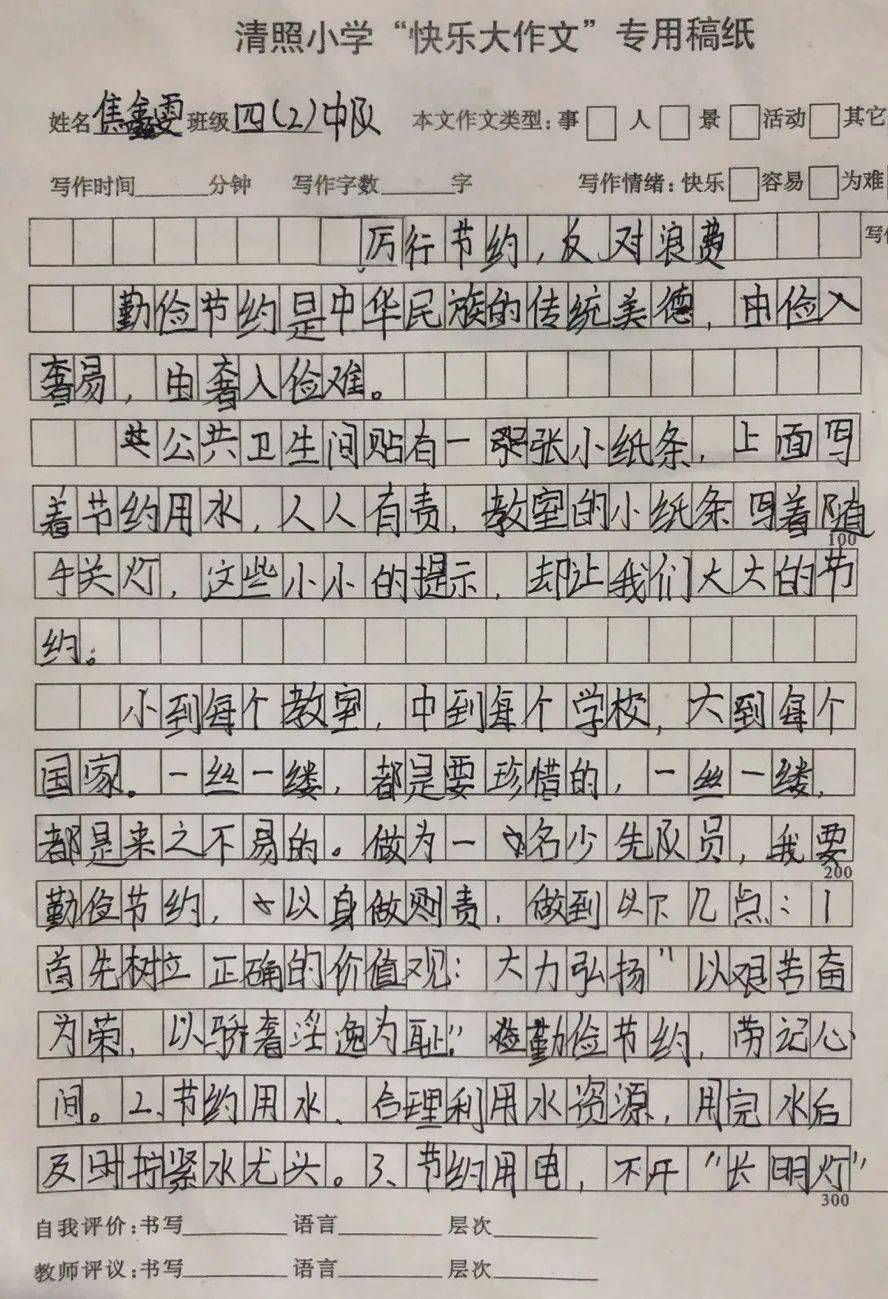 清照小学“快乐大作文”专用稿纸
姓名焦鑫雯班级四(2)中队 本文作文类型:事□ 人□ 景□活动□其它
写作时间____分钟 写作字数____字 写作情绪:快乐□容易□为难
厉行节约,反对浪费 写作
勤俭节约是中华民族的传统美德,由俭入
奢易,由奢入俭难。
公共卫生间贴有一张小纸条,上面写
着节约用水,人人有责,教室的小纸条写着随
100
手关灯,这些小小的提示,却让我们大大的节
约。
小到每个教室,中到每个学校,大到每个
国家。一丝一缕,都是要珍惜的,一丝一缕,
都是来之不易的。做为一名少先队员,我要
200
勤俭节约,以身做则责,做到以下几点:1
首先树立正确的价值观:大力弘扬"以艰苦奋
为荣,以骄奢淫逸为耻"。勤俭节约,劳记心
间。2、节约用水、合理利用水资源,用完水后
反时拧紧水尤头。3、节约用电,不开“长明灯”
300
自我评价:书写____ 语言____ 层次____
教师评议:书写____ 语言____ 层次____